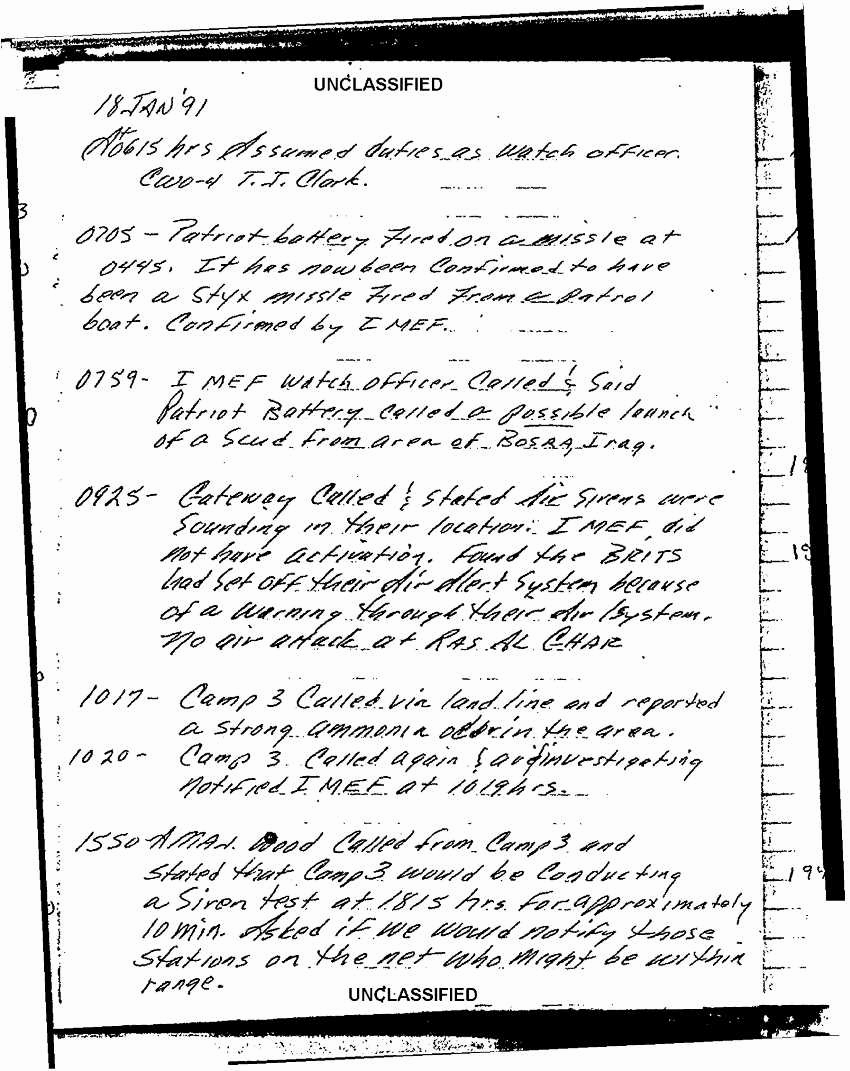 UNCLASSIFIED
18 JAN '91
At 0615 hrs Assumed duties as watch officer.
CWO-4 T.J. Clark.
0705 - Patriot battery Fired on a missle at
0445. It has now been Confirmed to have
been a Styx missle Fired From a Patrol
boat. Confirmed by I MEF.
0759 - I MEF watch officer Called & Said
Patriot Battery called a possible launch
of a Scud from area of BOSRA, Iraq.
0925 - Gateway Called & stated Air Sirens were
Sounding in their location. I MEF did
not have activation. Found the BRITS
had Set OFF their Air Alert System because
of a warning through their Air System.
No air attack at RAS AL GHAR
1017 - Camp 3 Called via land line and reported
a strong ammonia odor in the area.
1020 - Camp 3 Called again & investigating
Notified I MEF at 1019 hrs.
1550 - MAJ. Wood Called from Camp 3 and
stated that Camp 3 would be Conducting
a Siren test at 1815 hrs For approximately
10 min. Asked if we would notify those
Stations on the net who might be within
range.
UNCLASSIFIED